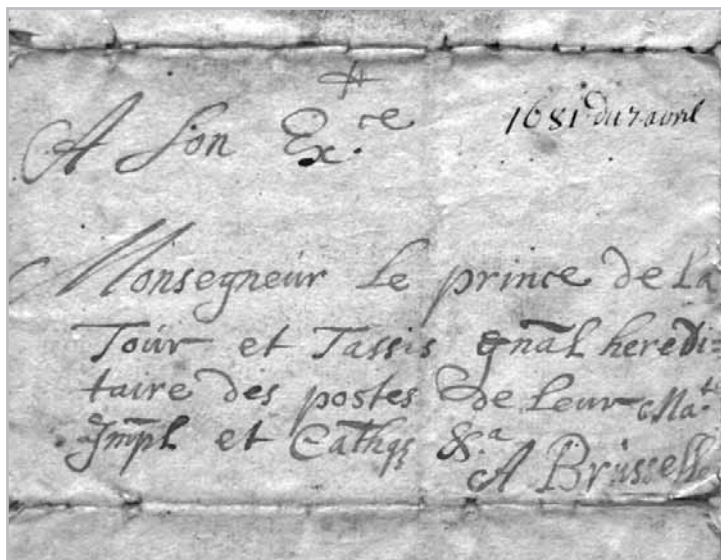 1681 du 7 avril
A Son Ex.ce
Monsegneur le prince de la
Tour et Tassis gnãl heredi=
taire des postes de leur Ma.t
Jmpl et Cathqs &.a
A Brüsselle